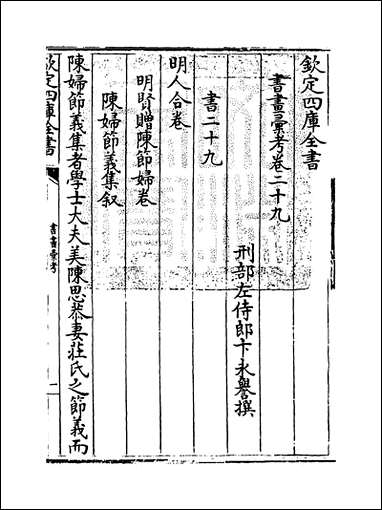 欽定四庫全書
書畫彙考卷二十九
刑部左侍郎卞永譽撰
書二十九
明人合卷
明賢贈陳節婦卷
陳婦節義集叙
陳婦節義集者學士大夫美陳思恭妻莊氏之節義而
欽定四庫全書
書畫彙考
一